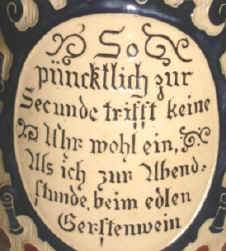 So
püncktlich zur
Secunde trifft keine
Uhr wohl ein,
Als ich zur Abend-
stunde, beim edlen
Gerstenwein